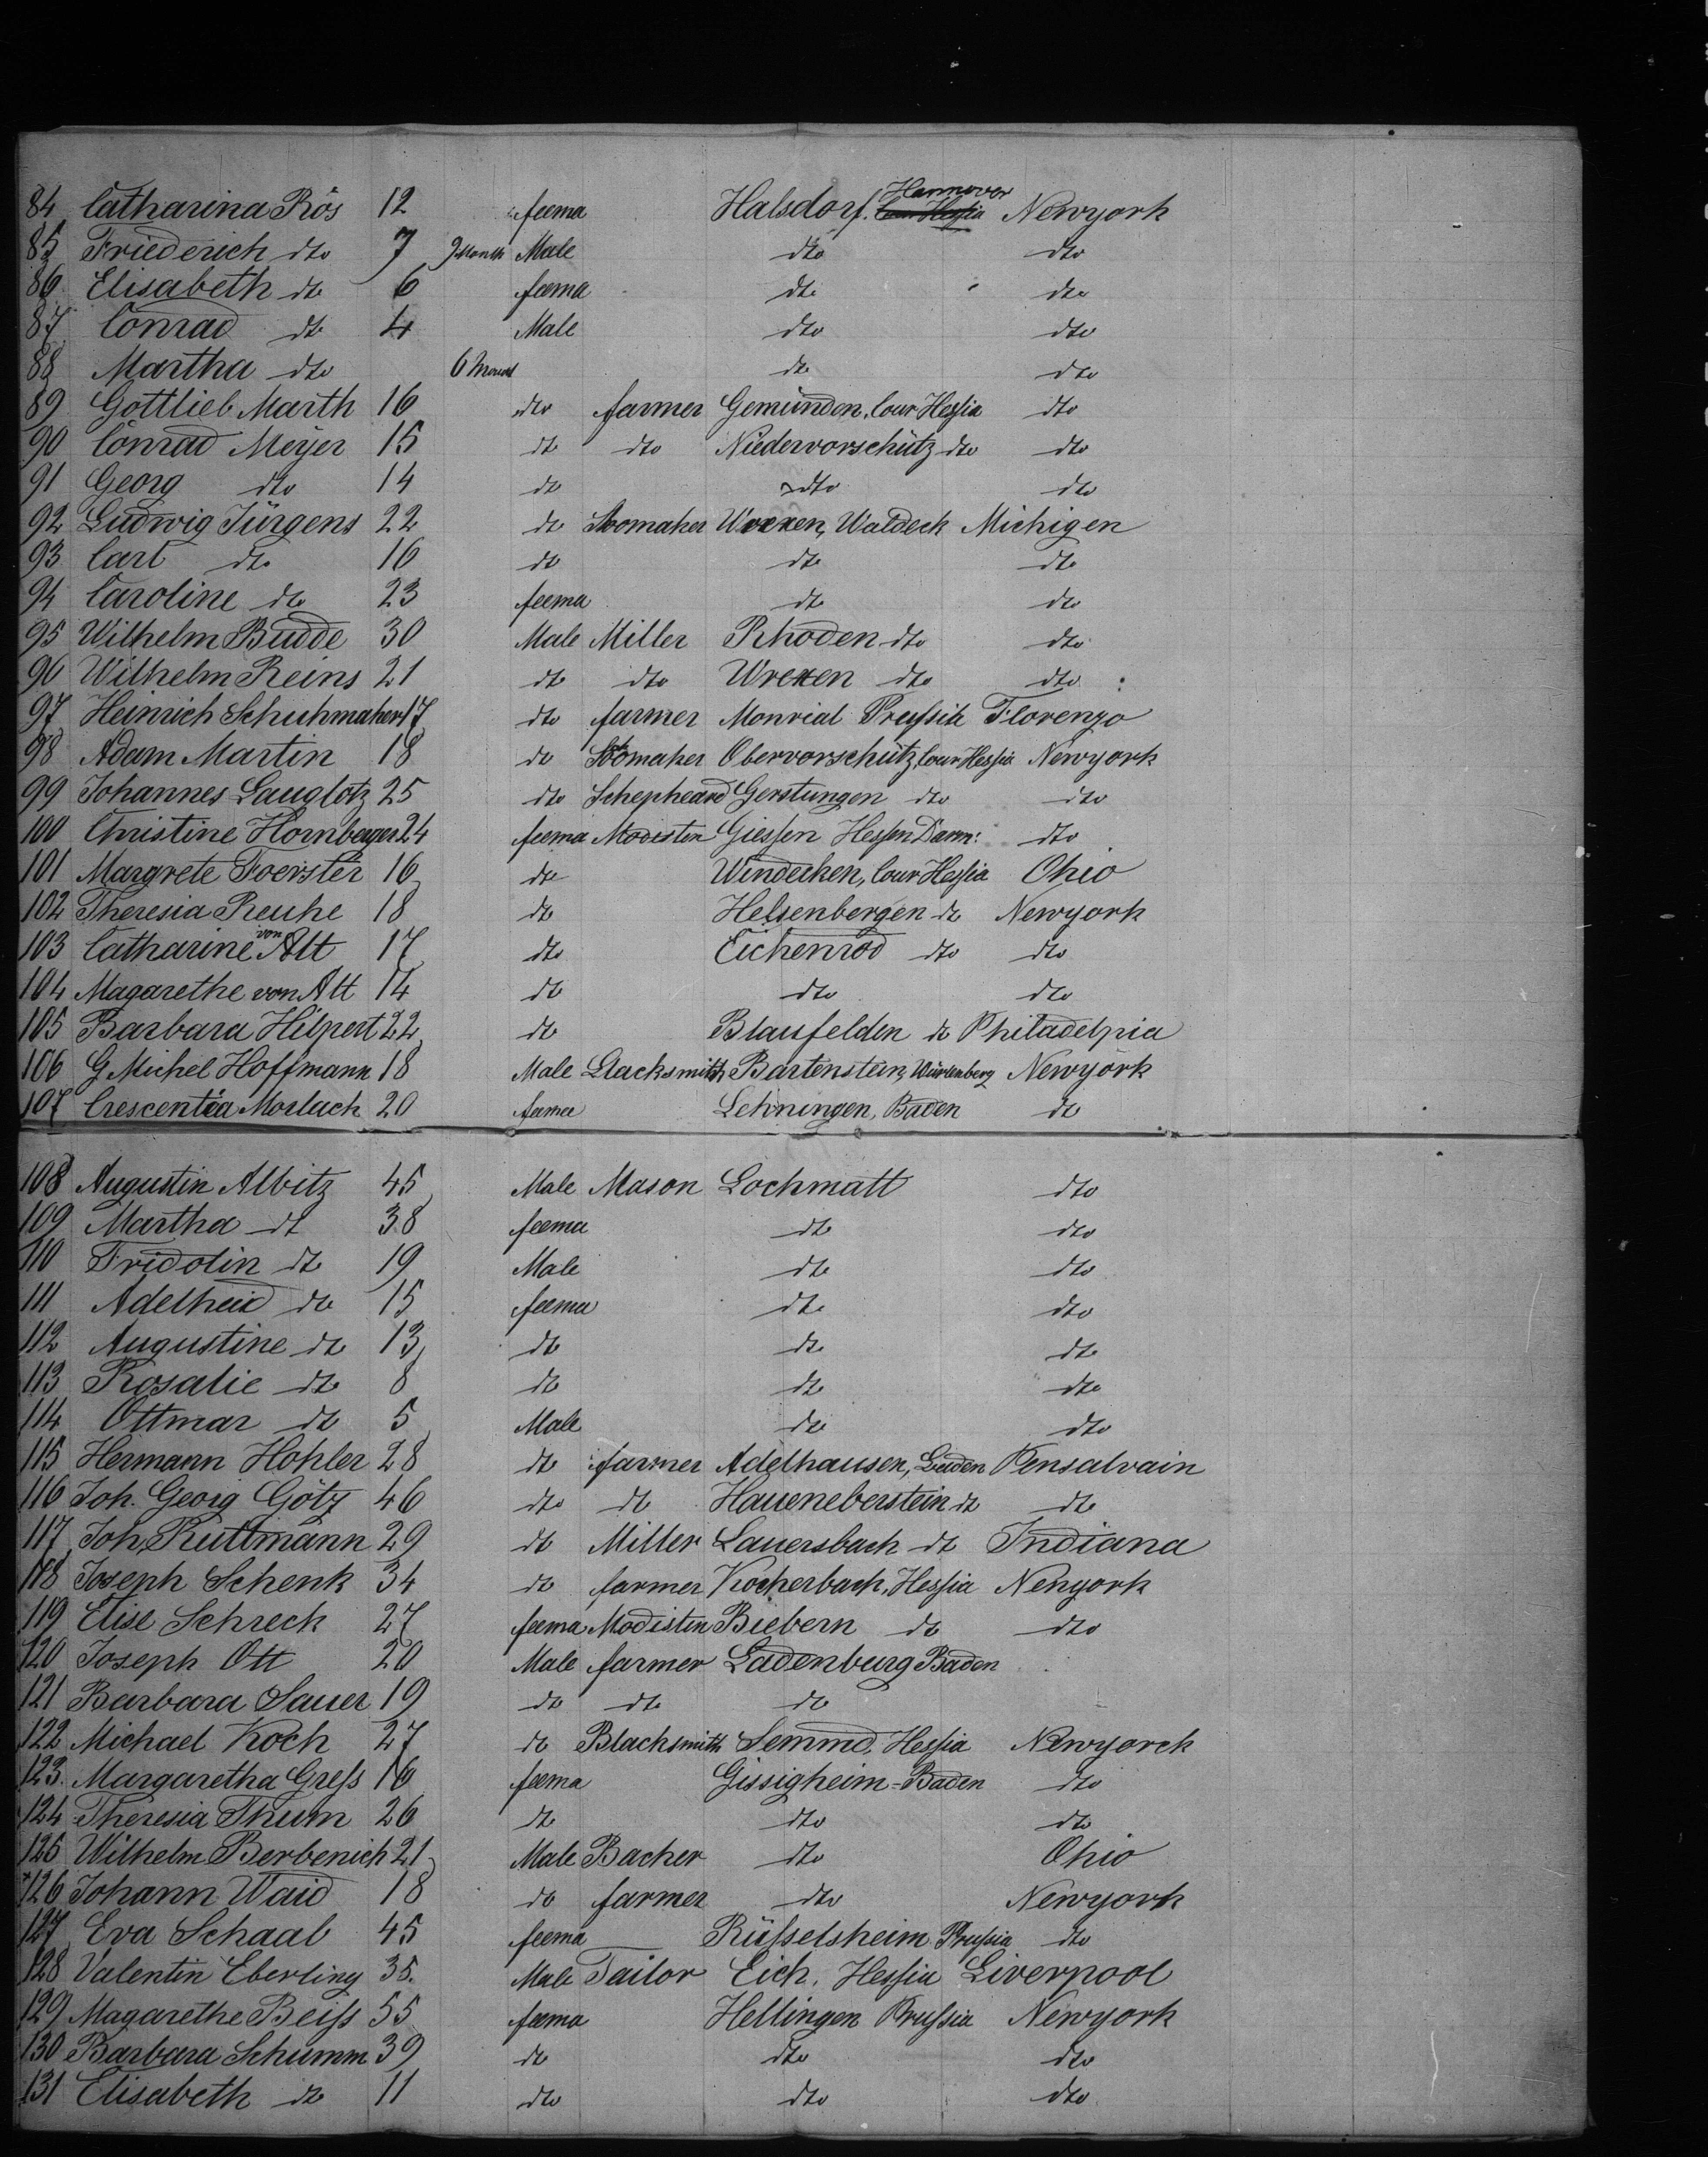 84 Catharina Rös 12 feema Halsdorf. Hannover Newyork
85 Friederich dto 7 9 Month Male dto dto
86 Elisabeth dto 6 feema dto dto
87 Conrad dto 4 Male dto dto
88 Martha dto 6 dto dto
89 Gottlieb Marth 16 dto farmer Gemünden, Cour Hessia dto
90 Conrad Meÿer 15 dto dto Niedervorschütz dto dto
91 Georg dto 14 dto dto dto
92 Ludwig Jürgens 22 dto Shomaker Wrexen, Waldeck Michigen
93 Carl dto 16 dto dto dto
94 Caroline dto 23 feema dto dto
95 Wilhelm Budde 30 Male Miller Rhoden dto dto
96 Wilhelm Reins 21 dto dto Wrexen dto dto
97 Heinrich Schuhmaker 17 dto farmer Monrial Prussia Florenzo
98 Adam Martin 18 dto Shomaker Obervorschütz, Cour Hessia Newyork
99 Johannes Lauglotz 25 dto Schepheard Gerstungen dto dto
100 Christine Hornberger 24 feema Modisten Giessen Hessen Darm: dto
101 Margrete Foerster 16 dto Windecken, Cour Hessia Ohio
102 Theresia Reuhe 18 dto Helsenbergen dto Newyork
103 Catharine von Alt 17 dto Eichenrod dto dto
104 Magarethe von Alt 14 dto dto dto
105 Barbara Hilpert 22 dto Blaufelden dto Philadelpia
106 G Michel Hoffmann 18 Male Blacksmith Bartenstein, Würtenberg Newyork
107 Crescentia Morlach 20 feema Lehningen, Baden dto
108 Augustin Albitz 45 Male Mason Lochmatt dto
109 Martha dto 38 feema dto dto
110 Fridolin dto 19 Male dto dto
111 Adelheid dto 15 feema dto dto
112 Augustine dto 13 dto dto dto
113 Rosalie dto 8 dto dto dto
114 Ottmar dto 5 Male dto dto
115 Hermann Hohler 28 dto farmer Adelhausen, Baden Pensalvain
116 Joh. Georg Götz 46 dto dto Haueneberstein dto dto
117 Joh. Ruttmann 29 dto Miller Lauersbach dto Indiana
118 Joseph Schenk 34 dto farmer Kocherbach, Hessia Newyork
119 Elise Schreck 27 feema Modisten Biebern dto dto
120 Joseph Ott 20 Male farmer Ladenburg Baden
121 Barbara Sauer 19 dto dto dto
122 Michael Koch 27 dto Blacksmith Semmd, Hessia Newyorck
123. Margaretha Gress 16 feema Gissigheim-Baden dto
124 Theresia Thum 26 dto dto dto
125 Wilhelm Berbenich 21 Male Backer dto Ohio
126 Johann Waid 18 dto farmer dto Newyork
127 Eva Schaab 45 feema Rüsselsheim Prussia dto
128 Valentin Eberling 35. Male Tailor Eich, Hessia Liverpool
129 Magarethe Beiss 55 feema Hellingen Prussia Newyork
130 Barbara Schumm 39 dto dto dto
131 Elisabeth dto 11 dto dto dto